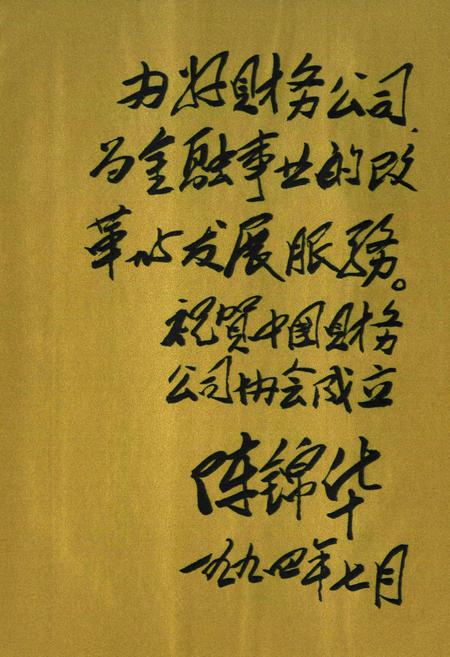 办好财务公司,
为金融事业的改
革与发展服務。
祝贺中国财务
公司协会成立
陈锦华
一九九四年七月